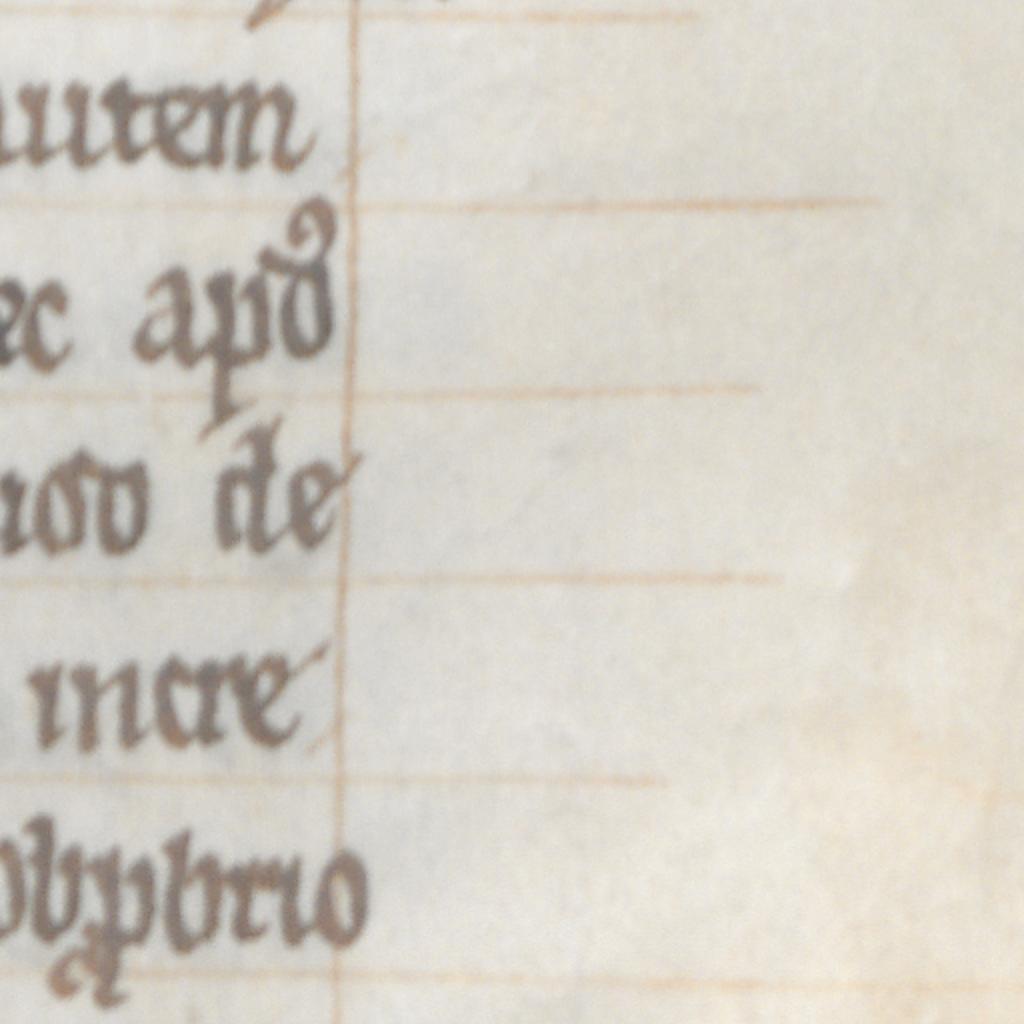 autem
ec apd
uso de
incre
obꝓbrio